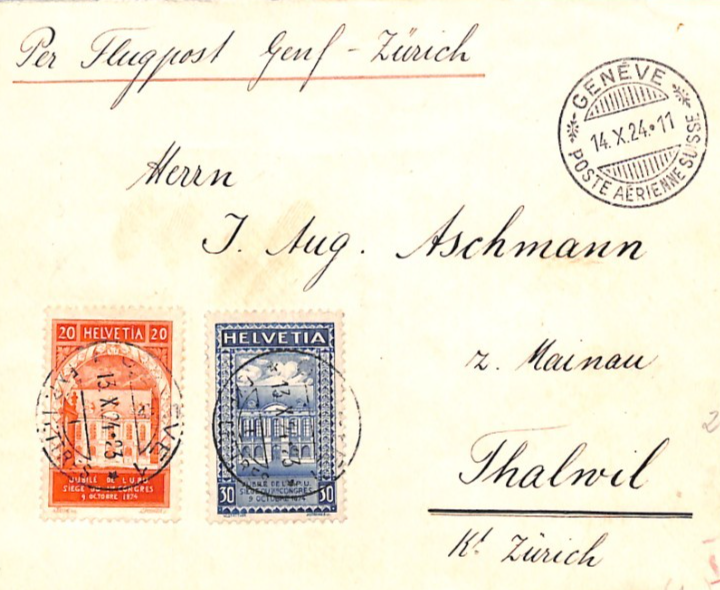 Per Flugpost Genf - Zürich
GENÈVE
14.X.24.11
POSTE AÉRIENNE SUISSE
Herrn
J. Aug. Aschmann
z. Mainau
Thalwil
Kt Zürich
20 HELVETIA 20
13.X.24.23
JUBILÉ DE L'U.P.U.
SIÈGE DU 1ER CONGRÈS
9 OCTOBRE 1874
HELVETIA
13.X
JUBILÉ DE L'U.P.U.
SIÈGE DU 1ER CONGRÈS
30 9 OCTOBRE 1874 30